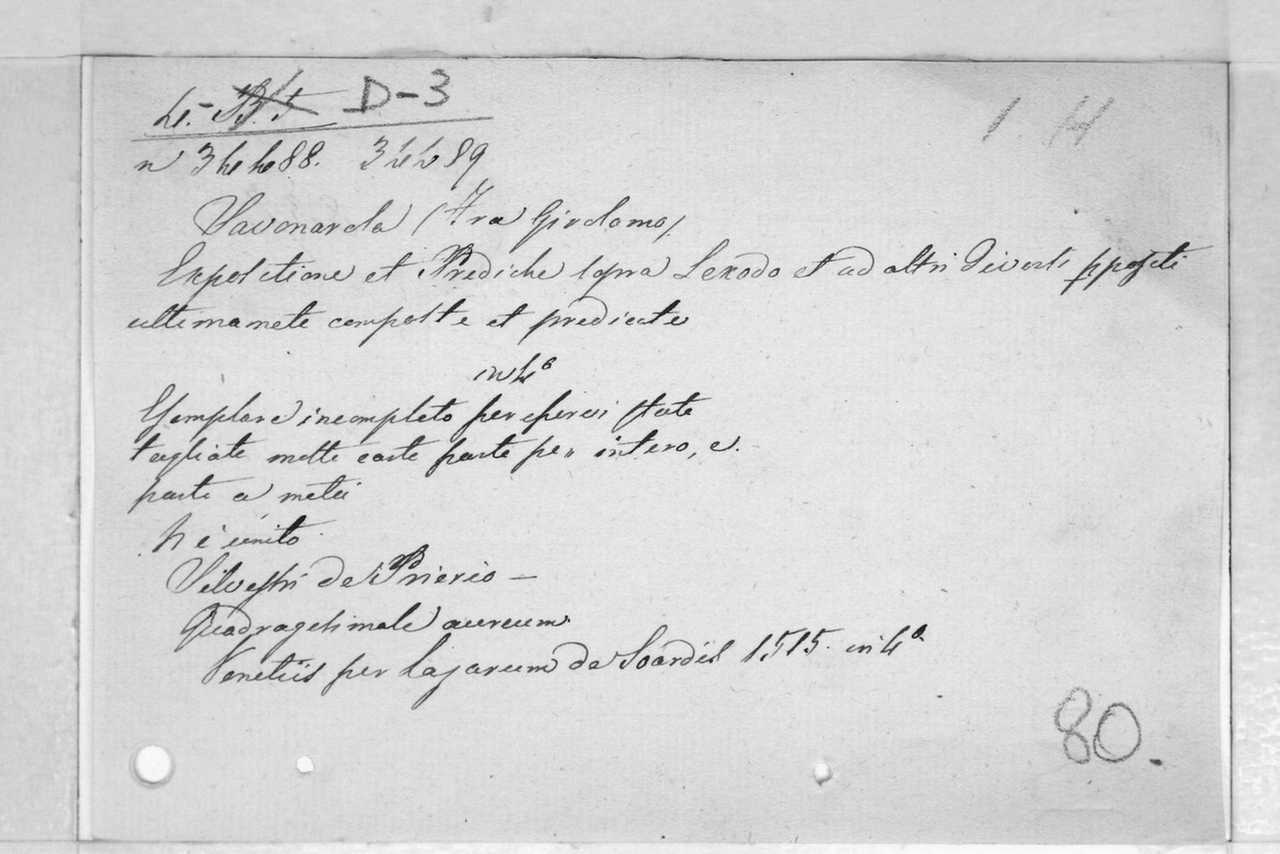 D-3
1. 14
n 34488. 34489
Savonarola (Fra Girolamo)
Expositione et Prediche sopra Lexodo et ad altri diversi ppositi
ultimamete composte et predicate
in 4º
Esemplare incompleto per esservi state
tagliate molte carte parte per intero, e
parte a metà
Vi è unito
Silvestri de Prierio —
Quadragesimale aureum.
Venetiis per Lazarum de Soardis 1515. in 4º.
80.